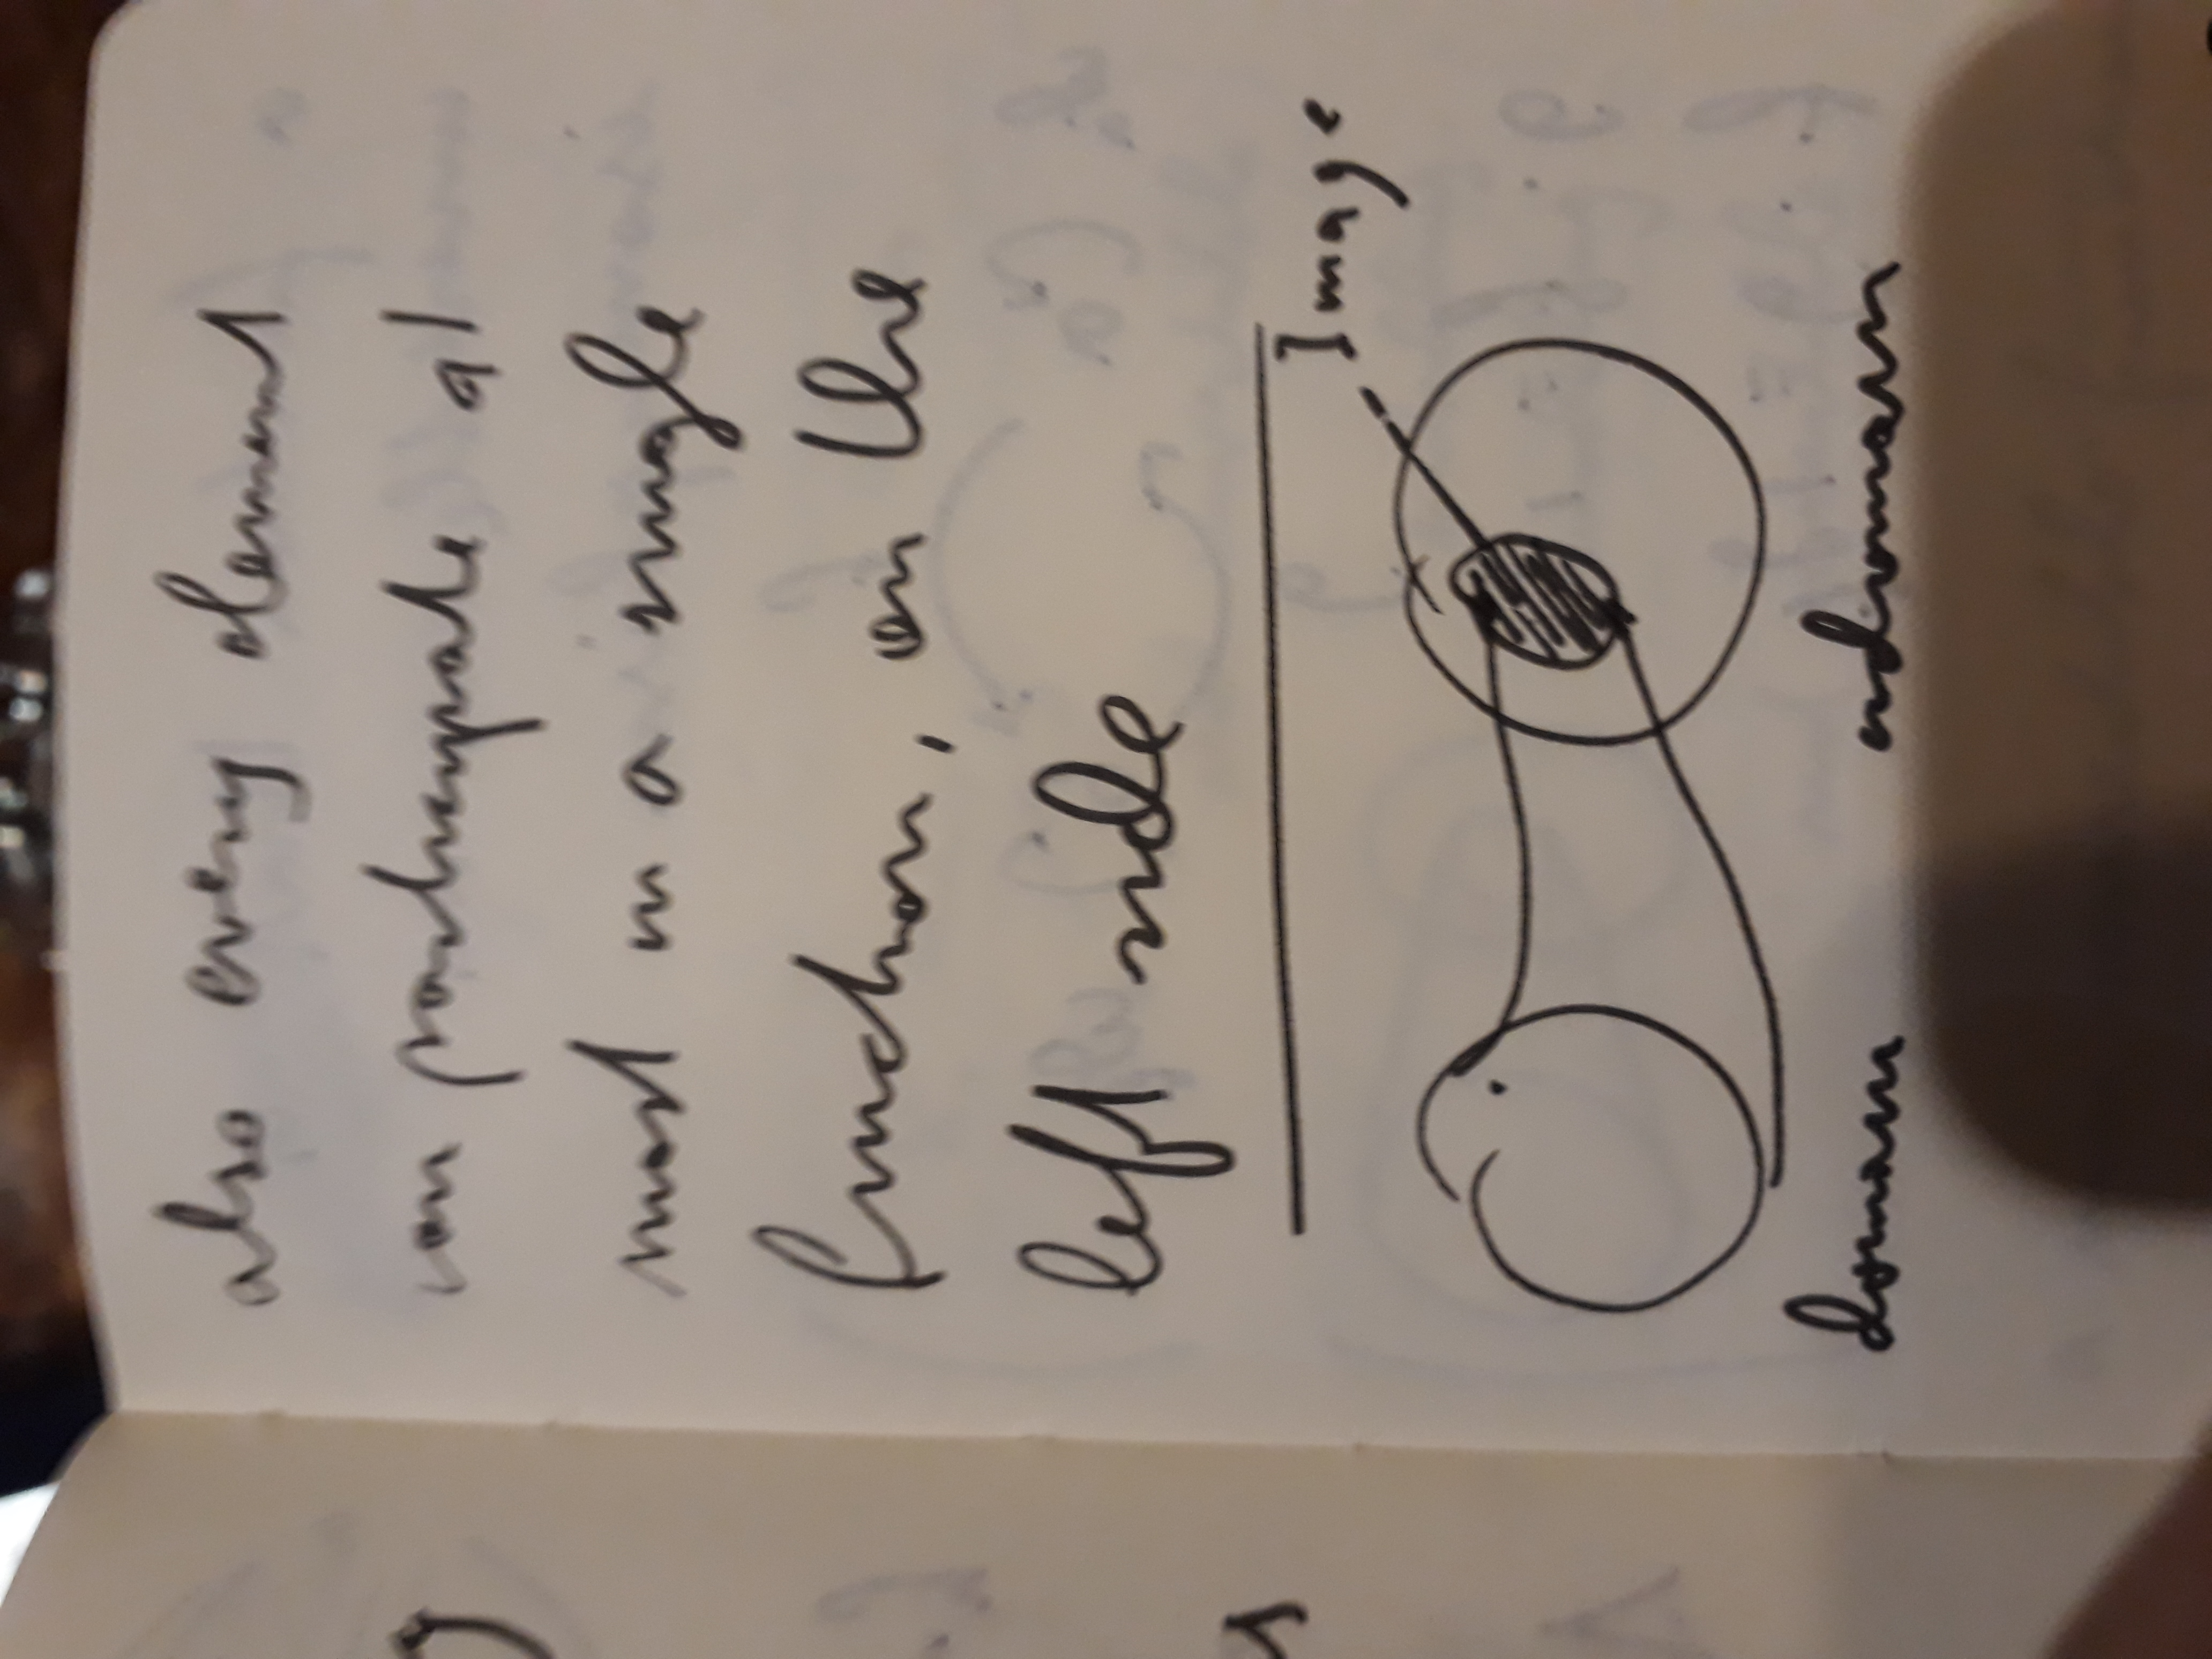 also every element
can participate at
most in a single
function, on the
left side
Image
domain codomain